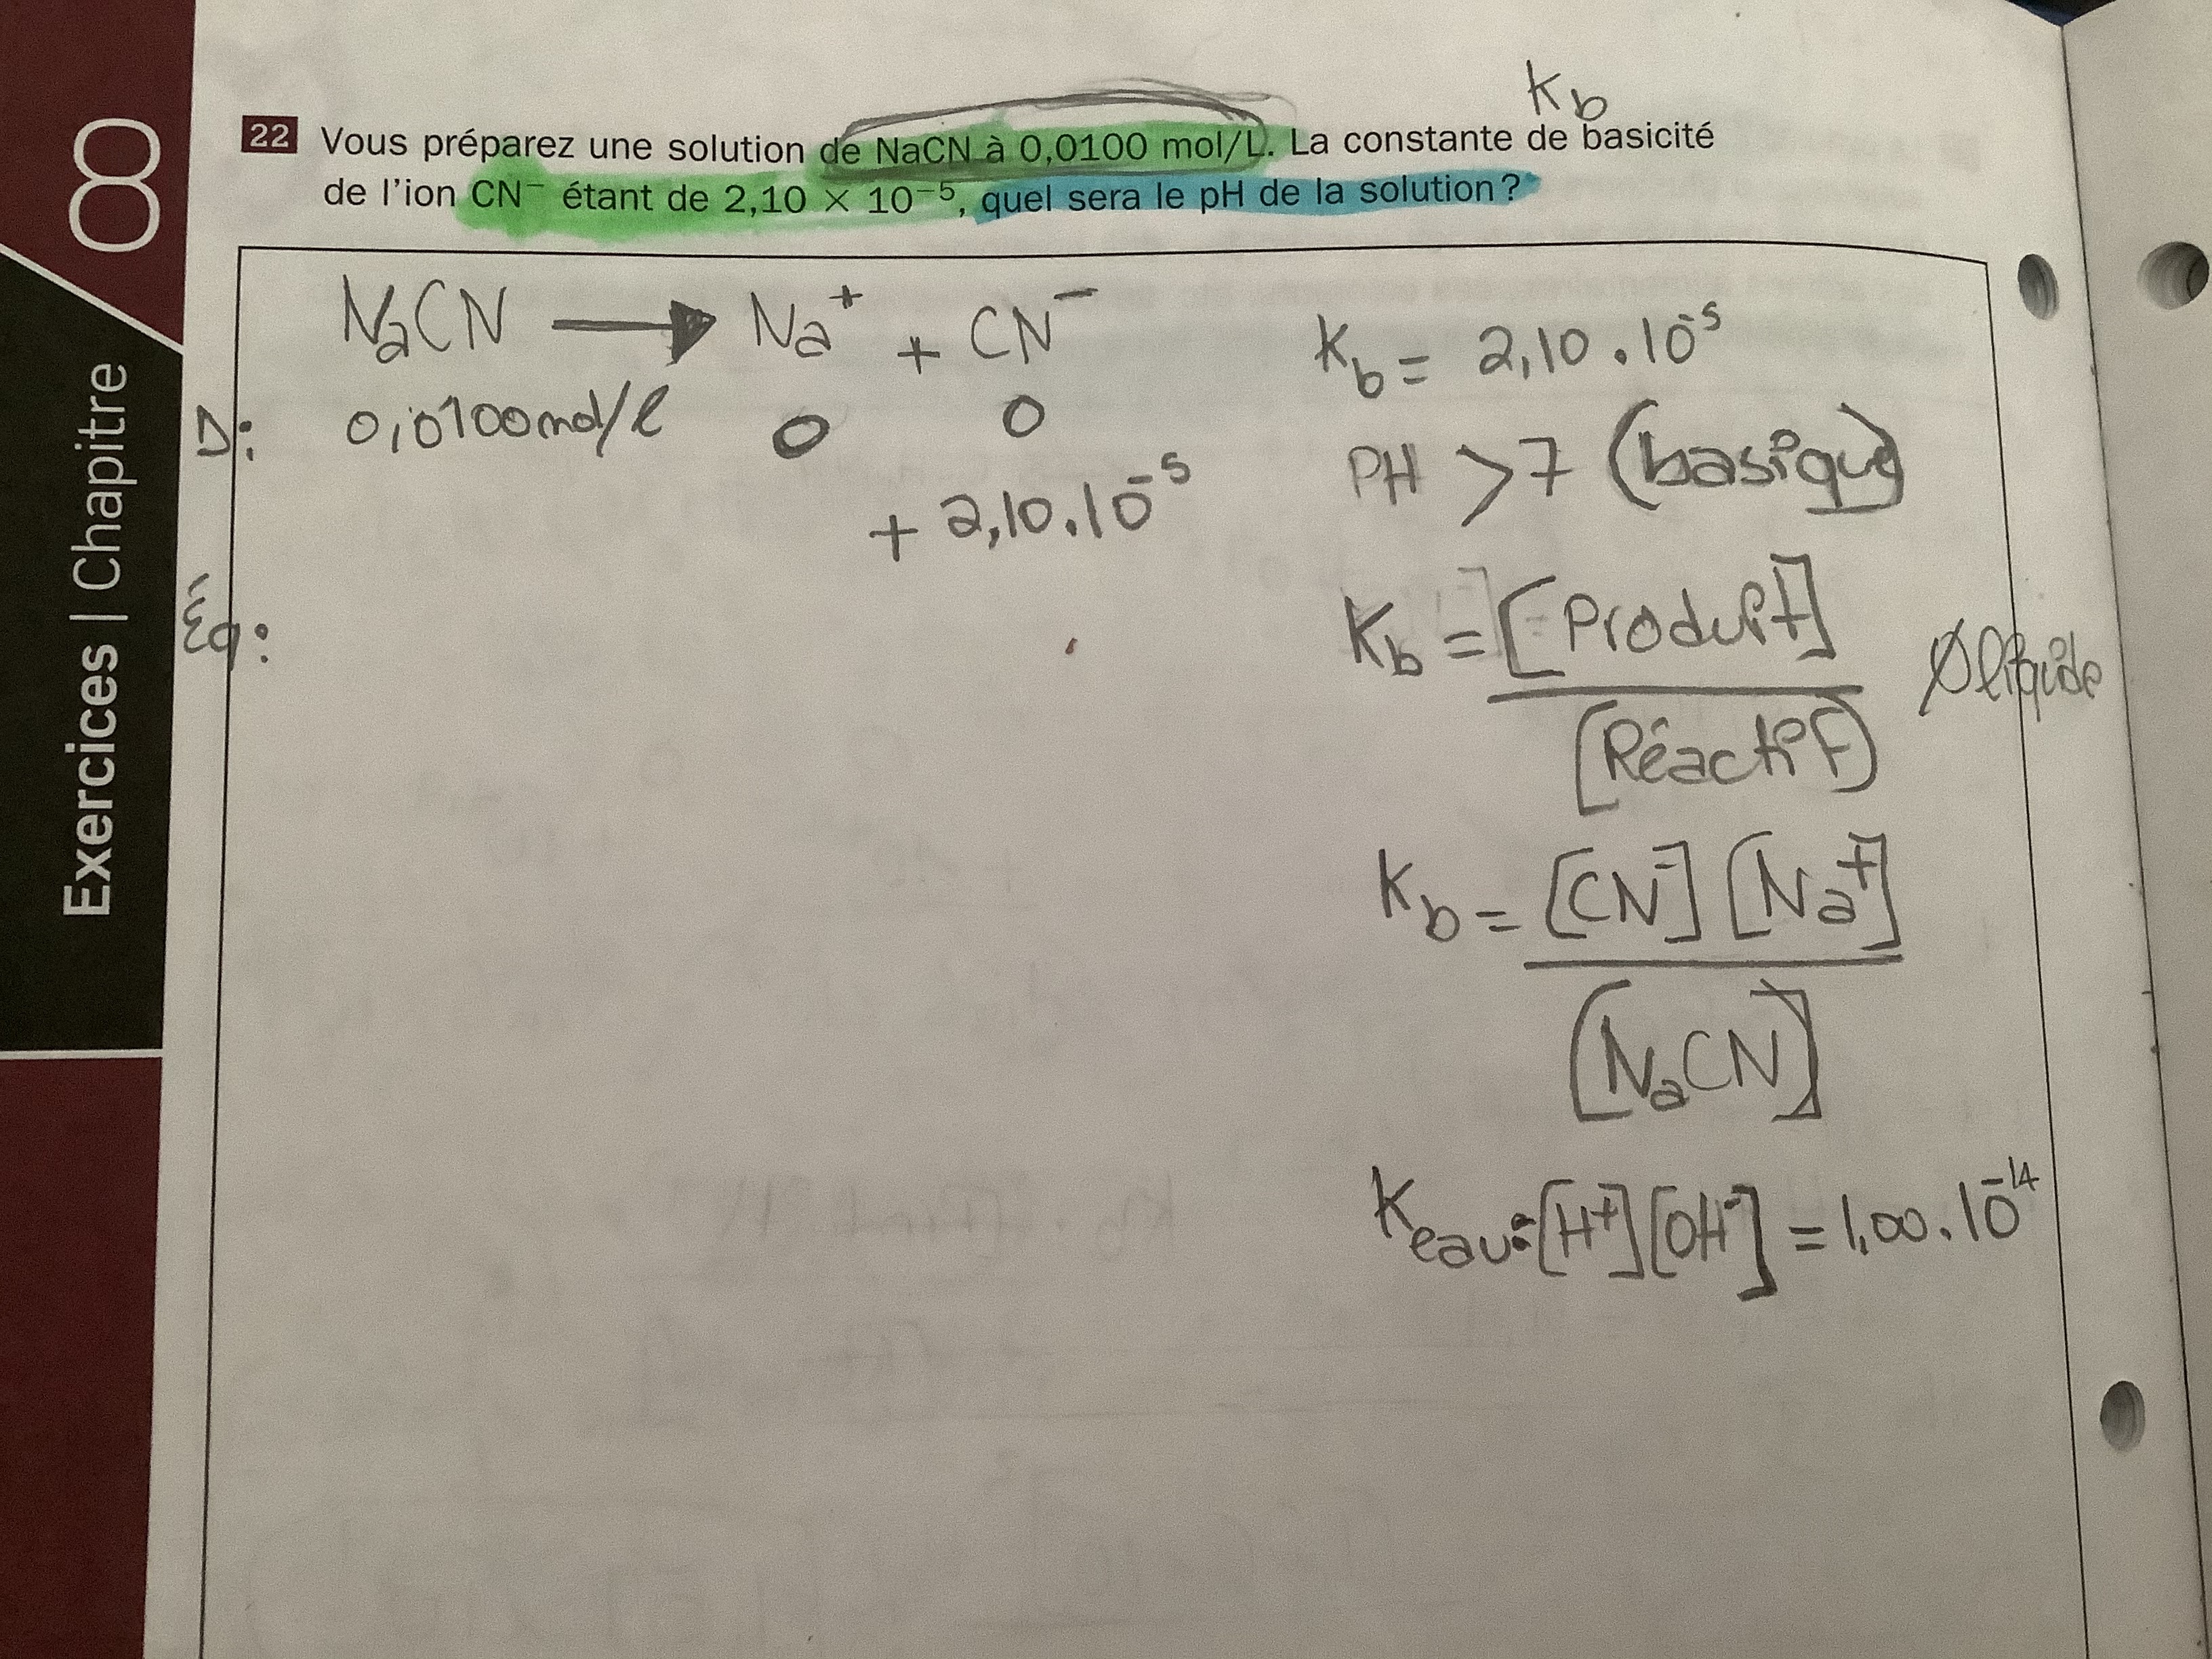 8
Exercices | Chapitre
Kb
22 Vous préparez une solution de NaCN à 0,0100 mol/L. La constante de basicité
de l'ion CN⁻ étant de 2,10 × 10⁻⁵, quel sera le pH de la solution ?
NaCN → Na⁺ + CN⁻
D: 0,0100mol/l 0 0
+ 2,10.10⁻⁵
Éq:
Kb = 2,10 . 10⁻⁵
PH > 7 (basique)
Kb = [Produit]
[Réactif)
Ø liquide
Kb = [CN⁻] [Na⁺]
[NaCN]
Keau: [H⁺] [OH⁻] = 1,00 . 10⁻¹⁴